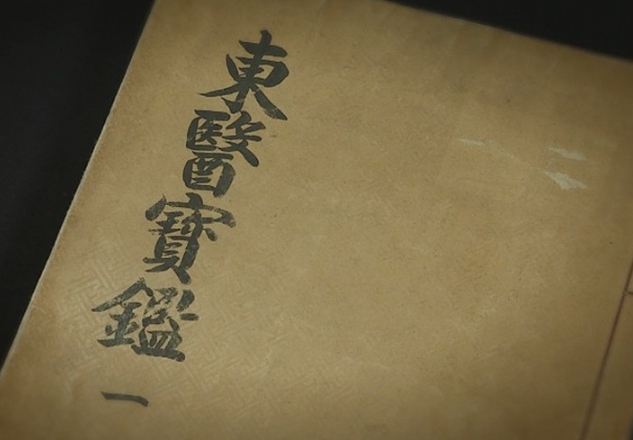 東醫寶鑑
一